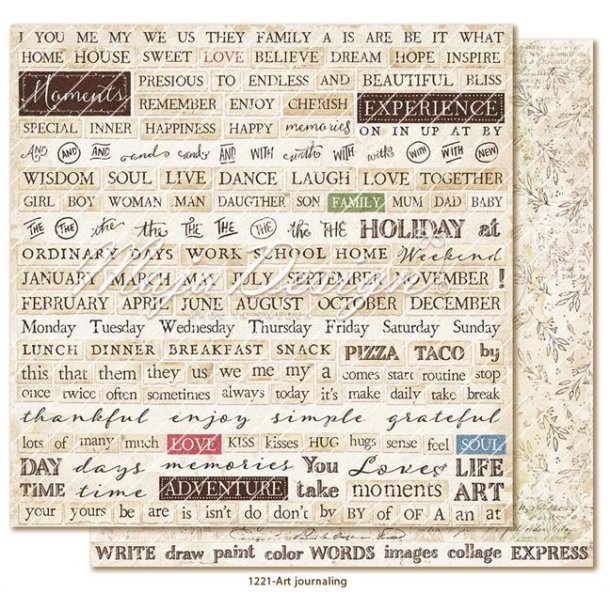 I YOU ME MY WE US THEY FAMILY A IS ARE BE IT WHAT
HOME HOUSE SWEET LOVE BELIEVE DREAM HOPE INSPIRE
Moments PRESIOUS TO ENDLESS AND BEAUTIFUL BLISS
REMEMBER ENJOY CHERISH EXPERIENCE
SPECIAL INNER HAPPINESS HAPPY memories ON IN UP AT BY
AND AND AND and and AND WITH with WITH with WITH WITH NEW
WISDOM SOUL LIVE DANCE LAUGH LOVE TOGETHER
GIRL BOY WOMAN MAN DAUGTHER SON FAMILY MUM DAD BABY
THE THE the the THE THE THE the THE HOLIDAY at
ORDINARY DAYS WORK SCHOOL HOME Weekend
JANUARY MARCH MAY JULY SEPTEMBER NOVEMBER !
Maja Design®
FEBRUARY APRIL JUNE AUGUST OCTOBER DECEMBER
Monday Tuesday Wednesday Thursday Friday Saturday Sunday
LUNCH DINNER BREAKFAST SNACK PIZZA TACO by
this that them they us we me my a comes start routine stop
once twice often sometimes always today it's make daily take break
thankful enjoy simple grateful
lots of many much LOVE KISS kisses HUG hugs sense feel SOUL
DAY days memories You Love LIFE
TIME time ADVENTURE take moments ART
your yours be are is isn't do don't by BY of OF A an at
WRITE draw paint color WORDS images collage EXPRESS
1221-Art journaling